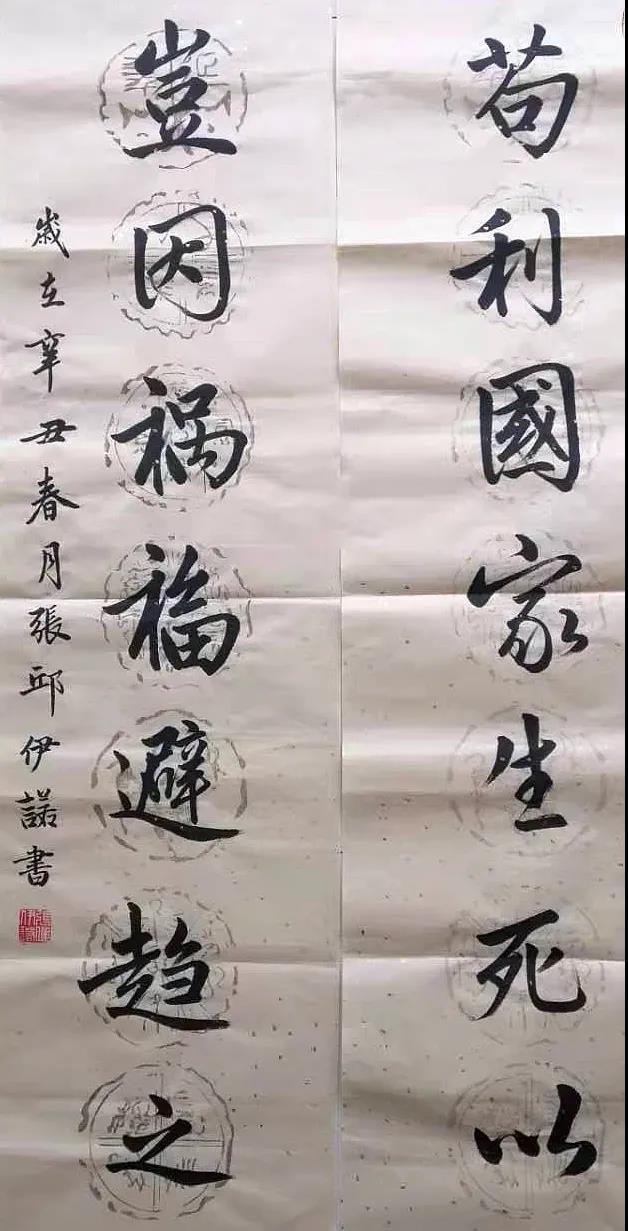 苟利國家生死以
豈因禍福避趋之
歲在辛丑春月張邱伊諾書